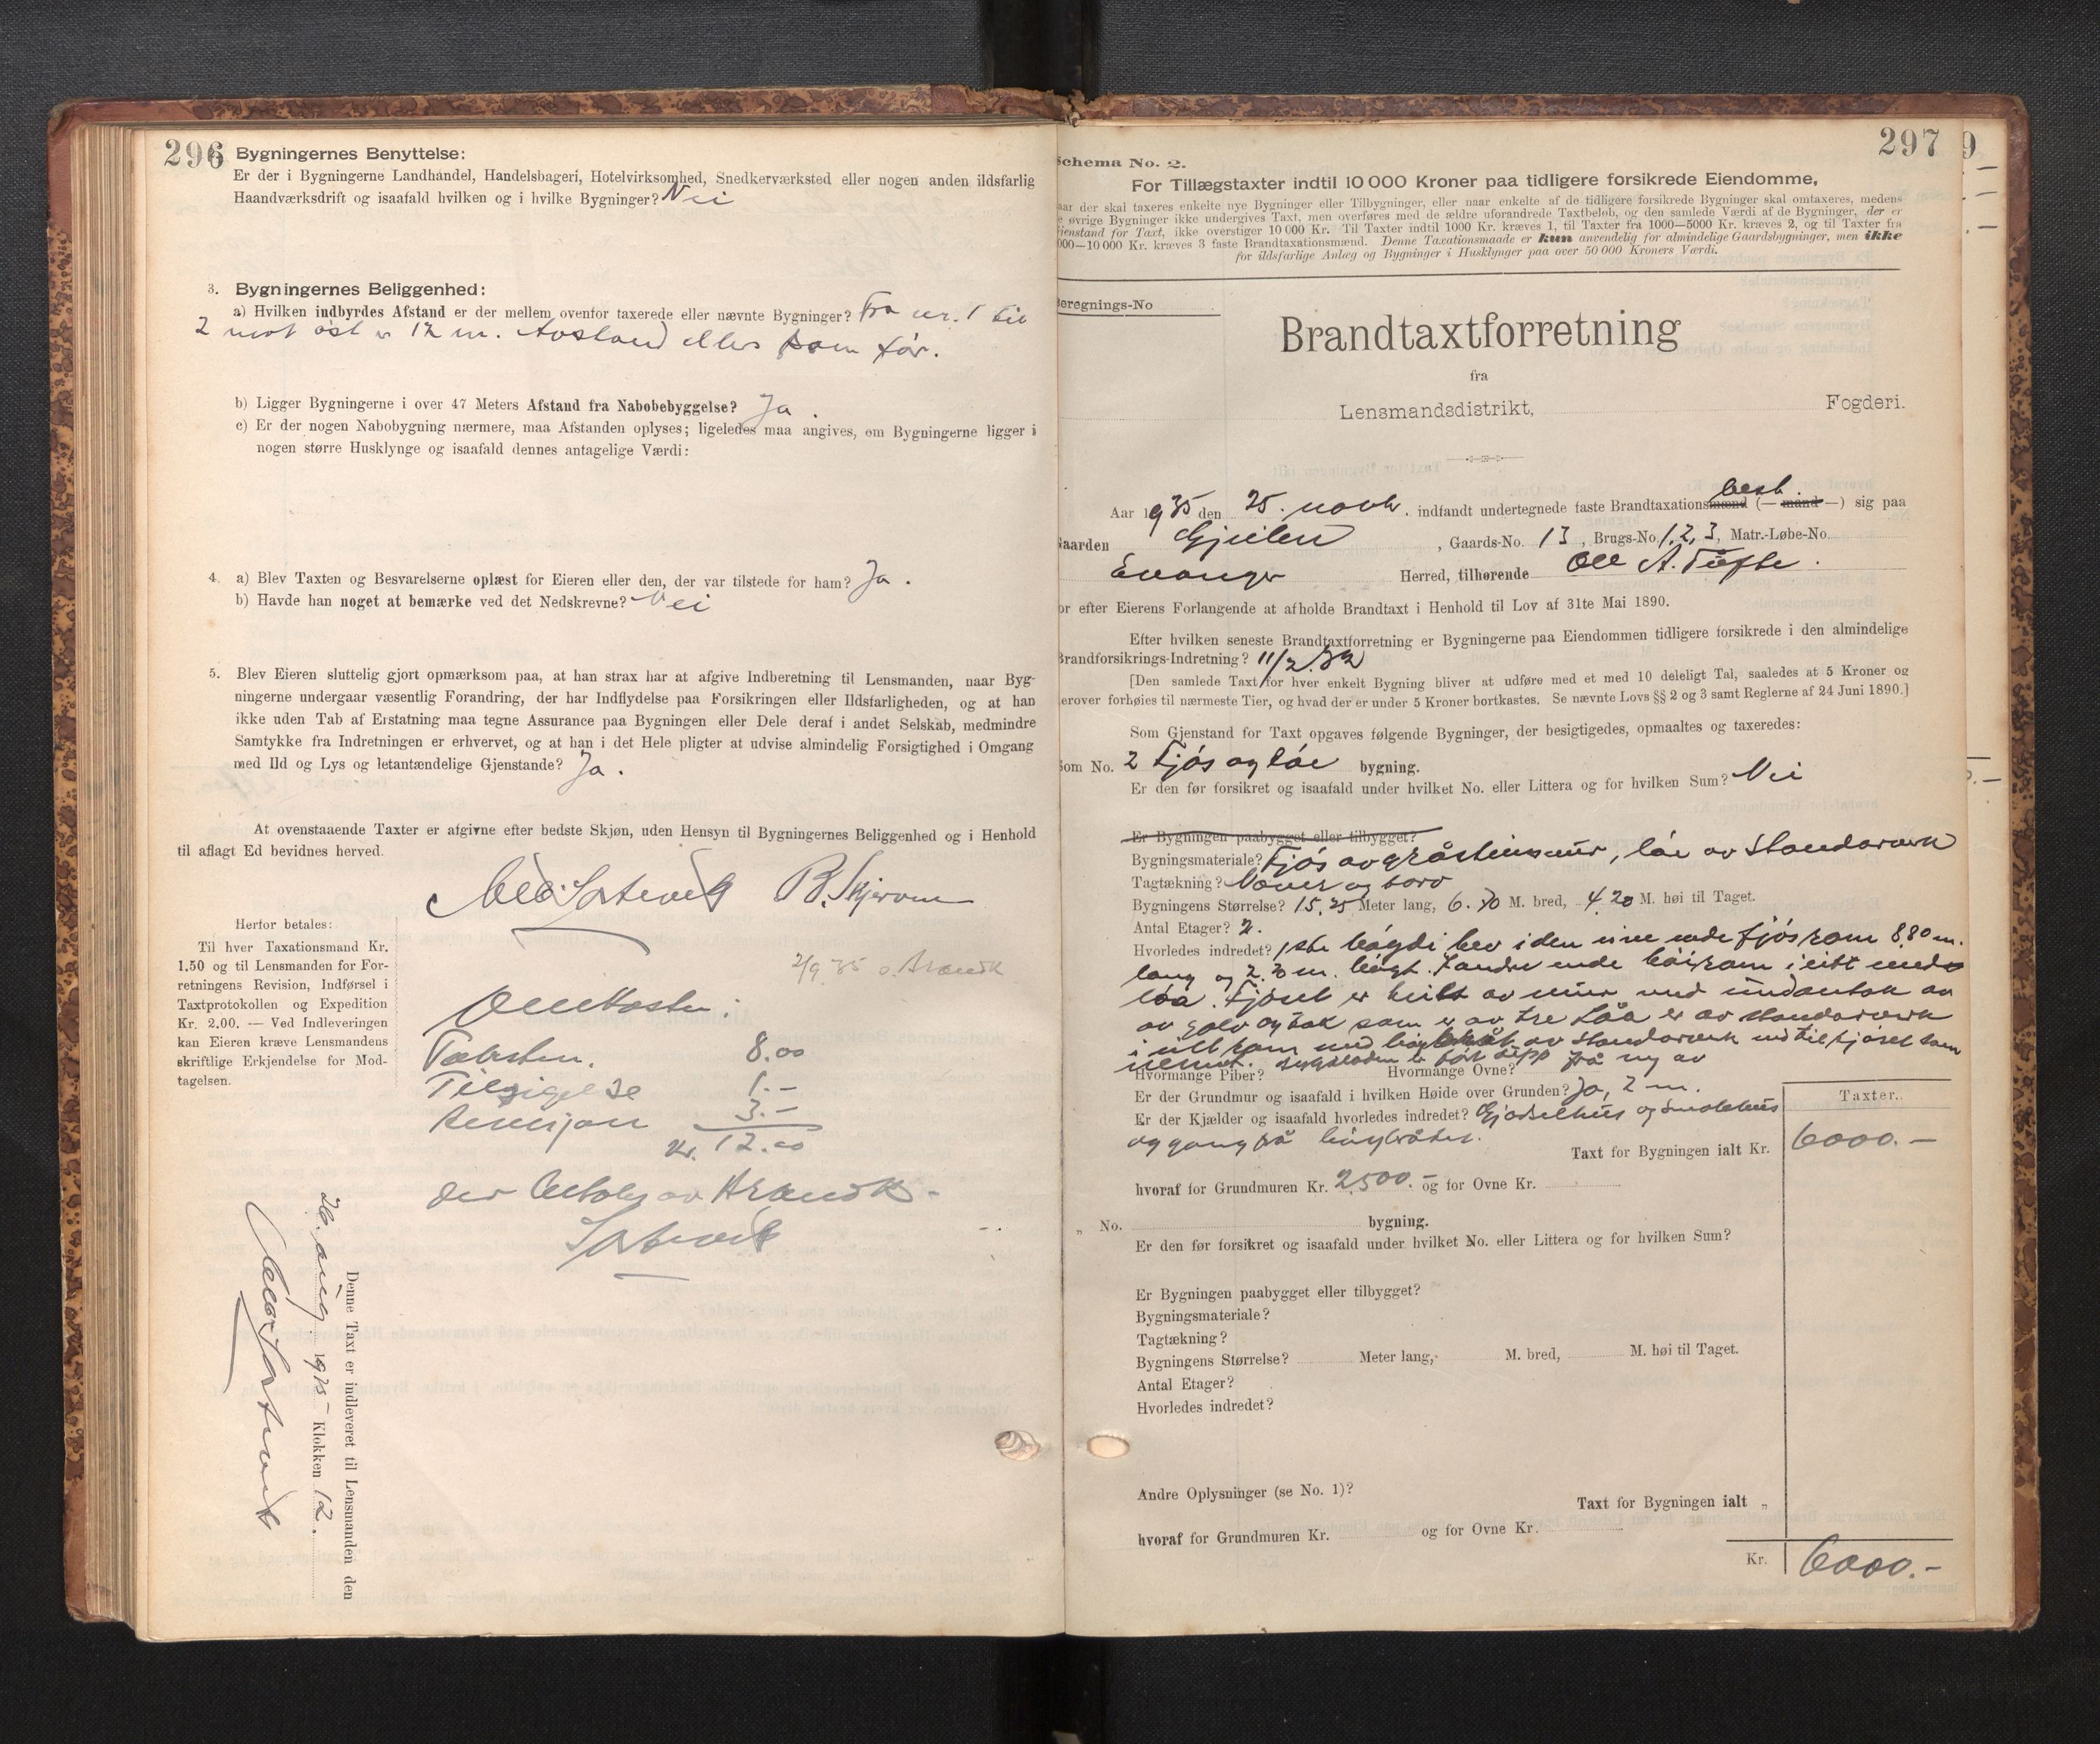 296
Bygningernes Benyttelse:
Er der i Bygningerne Landhandel, Handelsbageri, Hotelvirksomhed, Snedkerværksted eller nogen anden ildsfarlig
Haandværksdrift og isaafald hvilken og i hvilke Bygninger? Nei
3. Bygningernes Beliggenhed:
a) Hvilken indbyrdes Afstand er der mellem ovenfor taxerede eller nævnte Bygninger? Fra nr. 1 til
2 mot öst er 12 m. Avstand ellers som før.
b) Ligger Bygningerne i over 47 Meters Afstand fra Nabobebyggelse? Ja.
c) Er der nogen Nabobygning nærmere, maa Afstanden oplyses; ligeledes maa angives, om Bygningerne ligger i
nogen større Husklynge og isaafald dennes antagelige Værdi:
4. a) Blev Taxten og Besvarelserne oplæst for Eieren eller den, der var tilstede for ham? Ja.
b) Havde han noget at bemærke ved det Nedskrevne? Nei
5. Blev Eieren sluttelig gjort opmærksom paa, at han strax har at afgive Indberetning til Lensmanden, naar Byg-
ningerne undergaar væsentlig Forandring, der har Indflydelse paa Forsikringen eller Ildsfarligheden, og at han
ikke uden Tab af Erstatning maa tegne Assurance paa Bygningen eller Dele deraf i andet Selskab, medmindre
Samtykke fra Indretningen er erhvervet, og at han i det Hele pligter at udvise almindelig Forsigtighed i Omgang
med Ild og Lys og letantændelige Gjenstande? Ja.
At ovenstaaende Taxter er afgivne efter bedste Skjøn, uden Hensyn til Bygningernes Beliggenhed og i Henhold
til aflagt Ed bevidnes herved.
B. Skjerven
Herfor betales:
Til hver Taxationsmand Kr.
1.50 og til Lensmanden for For-
retningens Revision, Indførsel i
Taxtprotokollen og Expedition
Kr. 2.00. — Ved Indleveringen
kan Eieren kræve Lensmandens
skriftlige Erkjendelse for Mod-
tagelsen.
2/9 35
8.00
Tilsigelse 1.-
Revisjon 3.-
Kr. 12.00
Denne Taxt er indleveret til Lensmanden den
26. aug. 1935 Klokken 12.
297
9
Schema No. 2.
For Tillægstaxter indtil 10 000 Kroner paa tidligere forsikrede Eiendomme,
aar der skal taxeres enkelte nye Bygninger eller Tilbygninger, eller naar enkelte af de tidligere forsikrede Bygninger skal omtaxeres, medens
e øvrige Bygninger ikke undergives Taxt, men overføres med de ældre uforandrede Taxtbeløb, og den samlede Værdi af de Bygninger, der er
jenstand for Taxt, ikke overstiger 10 000 Kr. Til Taxter indtil 1000 Kr. kræves 1, til Taxter fra 1000—5000 Kr. kræves 2, og til Taxter fra
000—10 000 Kr. kræves 3 faste Brandtaxationsmænd. Denne Taxationsmaade er kun anvendelig for almindelige Gaardsbygninger, men ikke
for ildsfarlige Anlæg og Bygninger i Husklynger paa over 50 000 Kroners Værdi.
Beregnings-No
Brandtaxtforretning
fra
Lensmandsdistrikt, Fogderi.
Aar 1935 den 25. novbr. indfandt undertegnede faste Brandtaxationsmænd (— mand —) sig paa
Gaarden Gjeilen, Gaards-No. 13, Brugs-No. 1, 2, 3, Matr.-Løbe-No.
Evanger Herred, tilhørende Ole A. Tufte.
or efter Eierens Forlangende at afholde Brandtaxt i Henhold til Lov af 31te Mai 1890.
Efter hvilken seneste Brandtaxtforretning er Bygningerne paa Eiendommen tidligere forsikrede i den almindelige
Brandforsikrings-Indretning? 11/2. 32
[Den samlede Taxt for hver enkelt Bygning bliver at udføre med et med 10 deleligt Tal, saaledes at 5 Kroner og
erover forhøies til nærmeste Tier, og hvad der er under 5 Kroner bortkastes. Se nævnte Lovs §§ 2 og 3 samt Reglerne af 24 Juni 1890.]
Som Gjenstand for Taxt opgaves følgende Bygninger, der besigtigedes, opmaaltes og taxeredes:
Som No. 2 Fjös og löe bygning.
Er den før forsikret og isaafald under hvilket No. eller Littera og for hvilken Sum? Nei
Er Bygningen paabygget eller tilbygget?
Bygningsmateriale? Fjös av gråsteinsmur, löe av standarverk
Tagtækning? Never og torv
Bygningens Størrelse? 15.25 Meter lang, 6.70 M. bred, 4.20 M. høi til Taget.
Antal Etager? 2.
Hvorledes indredet? 1ste höydi blev i den eine ende fjösrom 8.80 m.
lang og 2.20 m. höyt. I andre ende höirom i eitt med
löa. Fjöset er heilt av mur med undantak av
av golv og tak som er av tre Löa er av standarverk
i eitt rom med
Hvormange Piber? Hvormange Ovne?
Er der Grundmur og isaafald i hvilken Høide over Grunden? Ja, 2 m.
Er der Kjælder og isaafald hvorledes indredet? Gjödselhus og
og gang på
Taxter.
Taxt for Bygningen ialt Kr. 6000.—
hvoraf for Grundmuren Kr. 2500.- og for Ovne Kr.
„ No. bygning.
Er den før forsikret og isaafald under hvilket No. eller Littera og for hvilken Sum?
Er Bygningen paabygget eller tilbygget?
Bygningsmateriale?
Tagtækning?
Bygningens Størrelse? Meter lang, M. bred, M. høi til Taget.
Antal Etager?
Hvorledes indredet?
Andre Oplysninger (se No. 1)?
Taxt for Bygningen ialt „
hvoraf for Grundmuren Kr. og for Ovne Kr.
Kr. 6000.-